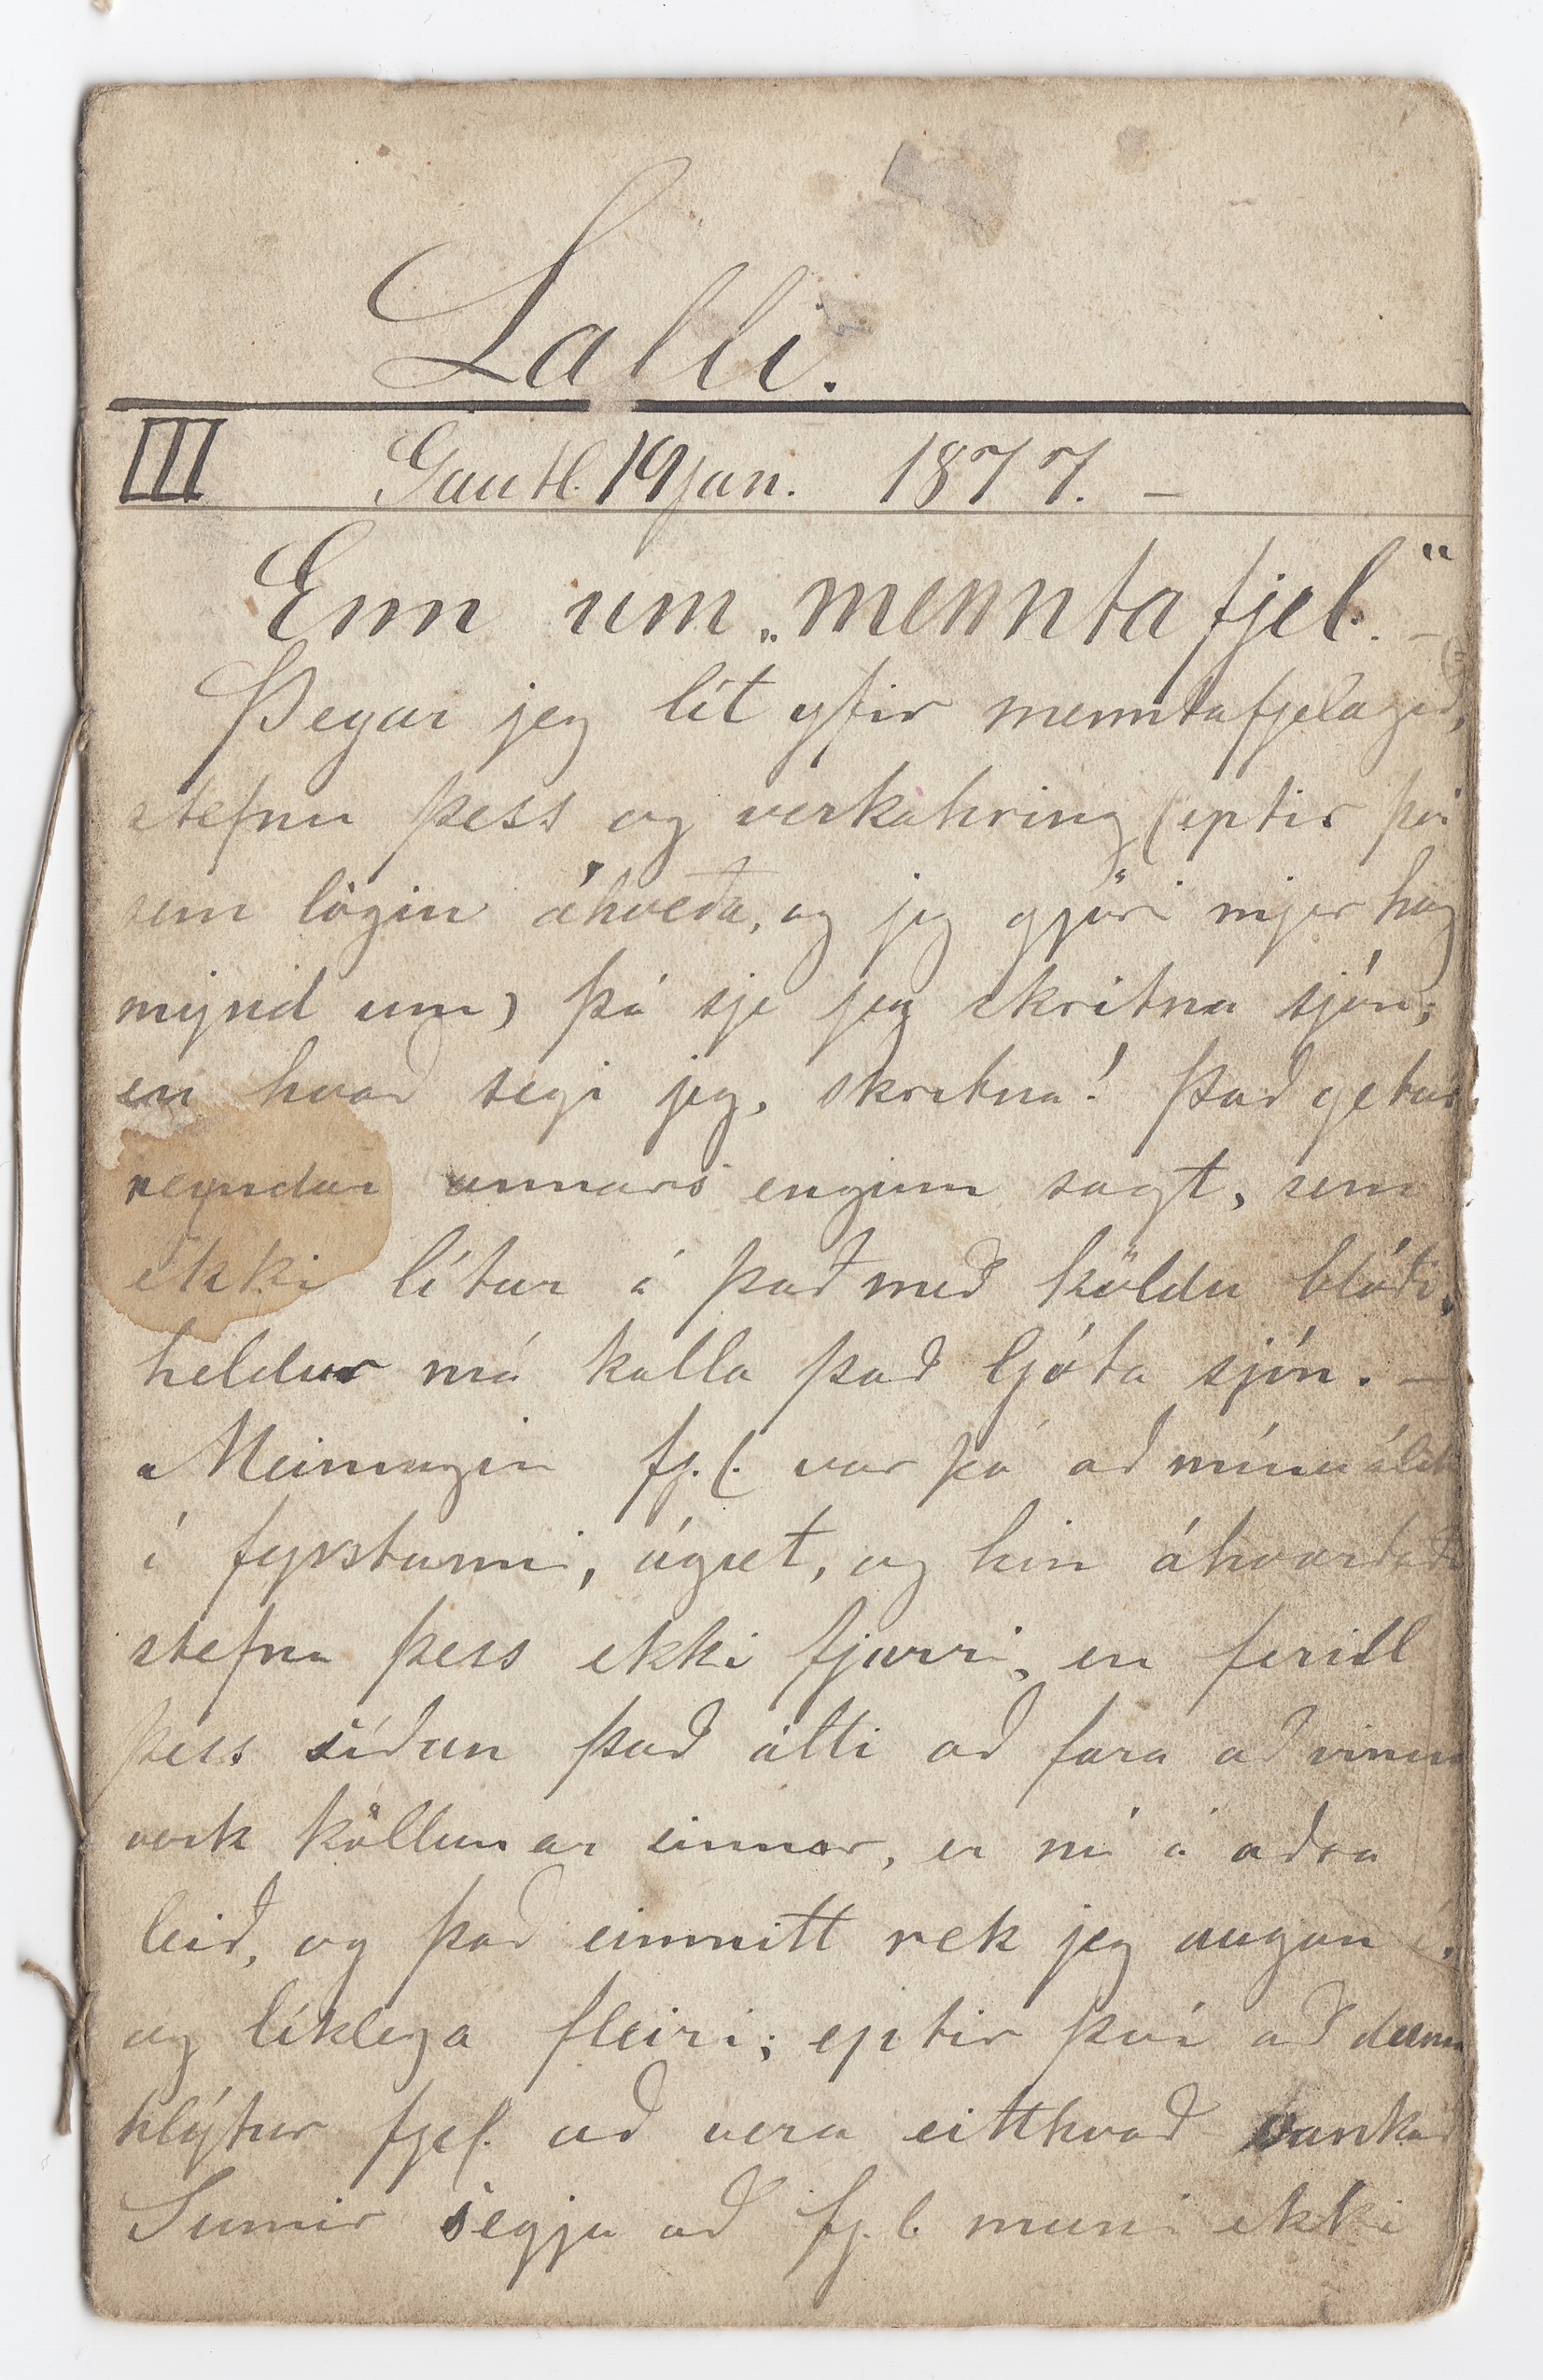 Lalli.
III Gautl. 19 jan. 1877. –
Enn um „menntafjel.“ –
Þegar jeg lít yfir menntafjelagið,
stefnu þess og verkahring (eptir því
sem lögin ákveða, og jeg gjöri mjer hug
mynd um) þá sje jeg skritna sjón;
en hvað segi jeg, skritna! Það getur
reyndar annars enginn sagt, sem
ekki lítur á það með köldu blóði,
heldur má kalla það ljóta sjón. –
Meiningin fj.l. var þó að mínu áliti
í fyrstunni, ágæt, og hin ákvarðaða
stefna þess ekki fjarri, en ferill
þess síðan það átti að fara að vinna
verk köllunar sinnar, er nú á aðra
leið, og það einmitt rek jeg augun í,
og líklega fleiri; eptir því að dæma
hlýtur fjel. að vera eitthvað vankað
Sumir segja að fj.l. muni ekki